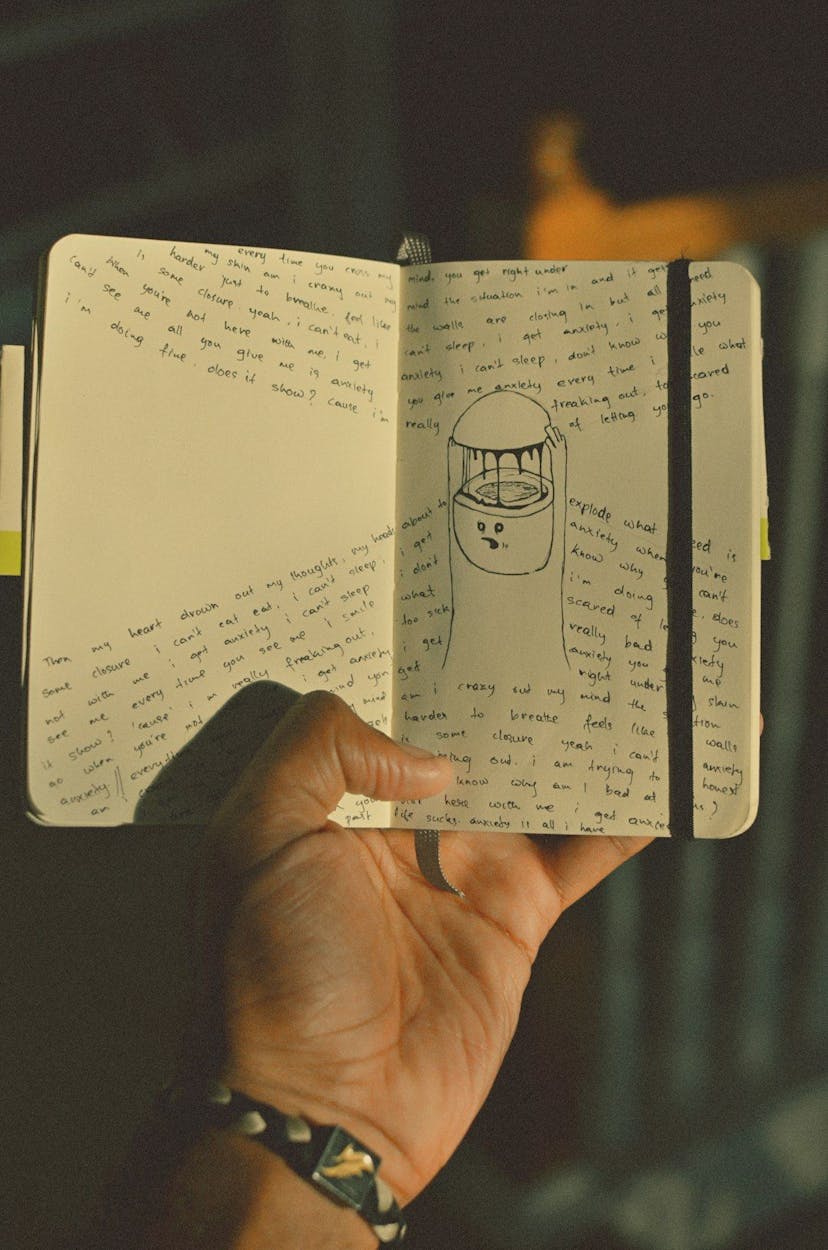 every time you cross my
my skin am i crazy out my
is harder just to breathe, feel like
some closure. yeah, i can't eat, i
When you're not here with me, i get
can't see me all you give me is anxiety
i'm doing fine, does it show? cause i'm
Then my heart drown out my thoughts, my heads
some closure i can't eat eat, i can't sleep,
not with me i get anxiety i can't sleep
see me every time you see me i smile
it show? 'cause' i'm really freaking out,
go when you're not i get anxiety
anxiety || mind you
am i mind
you
past
mind. you get right under
mind the situation i'm in and it gets need
the walls are closing in but all
can't sleep, i get anxiety, i get anxiety
anxiety i can't sleep, don't know you
you give me anxiety every time i what
really freaking out, to scared
of letting go.
about to explode what is
i get anxiety when you're
i don't know why can't
what i'm doing does
too sick scared of you
i get really bad
get anxiety you me
right under my skin
am i crazy out my mind the
harder to breathe feels like walls
is some closure yeah i can't anxiety
out. i am trying to honest
know why am i bad at
here with me i get
life sucks. anxiety is all i have